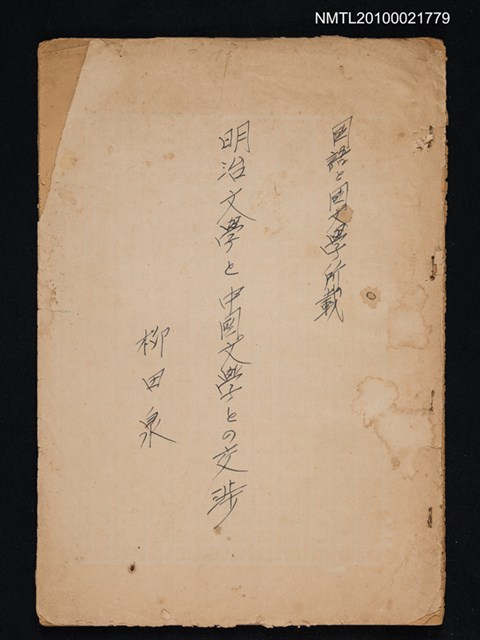 NMTL20100021779
国語と国文學所載
明治文學と中國文學との交渉
柳田泉